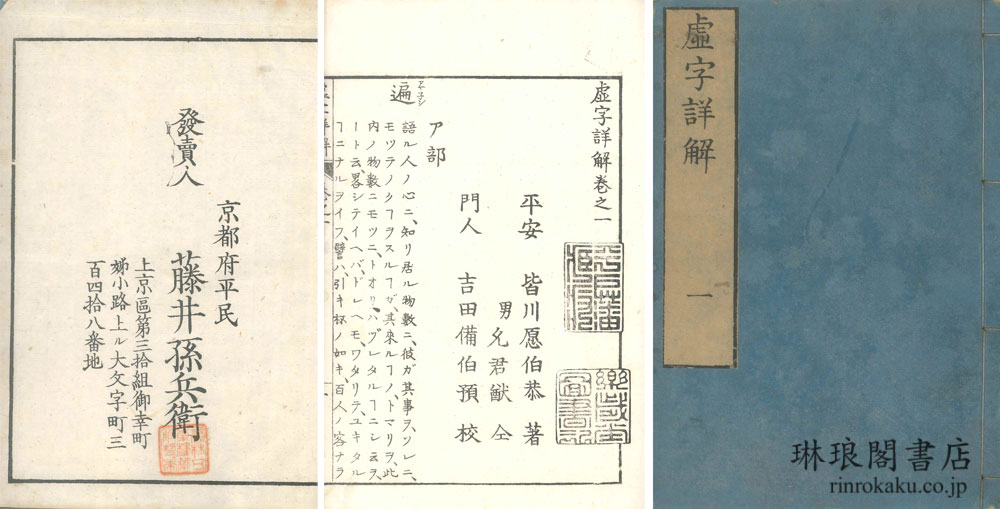 虛字詳解
一
琳琅閣書店
rinrokaku.co.jp
虛字詳解卷之一
平安 皆川愿伯恭 著
男 允君猷 仝
門人 吉田備伯預 校
ア部
遍
語ル人ノ心ニ、知リ居ル物數ニ、彼ガ其事ヲ、ソレニ、
モツテノクヿヲスルヿガ、其來ルヿノ、トマリヲ、此
内ノ物數ニモツニ、トオリハヅレタルヿニシ云ヲ、
ート云畧シテイヘバ、ドレヘモ、ワタリテ、ユキタル
ヿニナルヲイフ、譬ハ、引キ杯ノ如キ、百人ノ客ナラ
發賣人
京都府平民
藤井孫兵衛
上京區第三拾組御幸町
姉小路上ル大文字町三
百四拾八番地